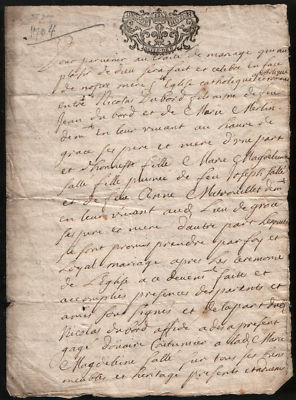 1704
Pour parvenir au traité de mariage qui au
plaisir de Dieu sera fait et celebré en face
de notre mere Ste Eglise catholique apostolique et romaine
entre Nicolas Dubord fils de feu
Jean du bord et de Marie Merlin
en leur vivant au havre de
grace ses pere et mere d'une part
et honneste fille Marie Magdelaine
Sallé fille puinée de feu Joseph Sallé
et de feue Anne
en leur vivant aud. Lieu de grace
ses pere et mere d'autre part lesquels
se sont promis prendre par foy et
loyal mariage apres les ceremonie
de L'Eglise a ce deument faite et
accomplies presences des parents et
amis sous signés et de la part dud.
Nicolas du bord a dès a present
gagé douaire Coutumier a lad. Marie
Magdeleine Sallé sur tous ses biens
meubles et heritage presents et avenir